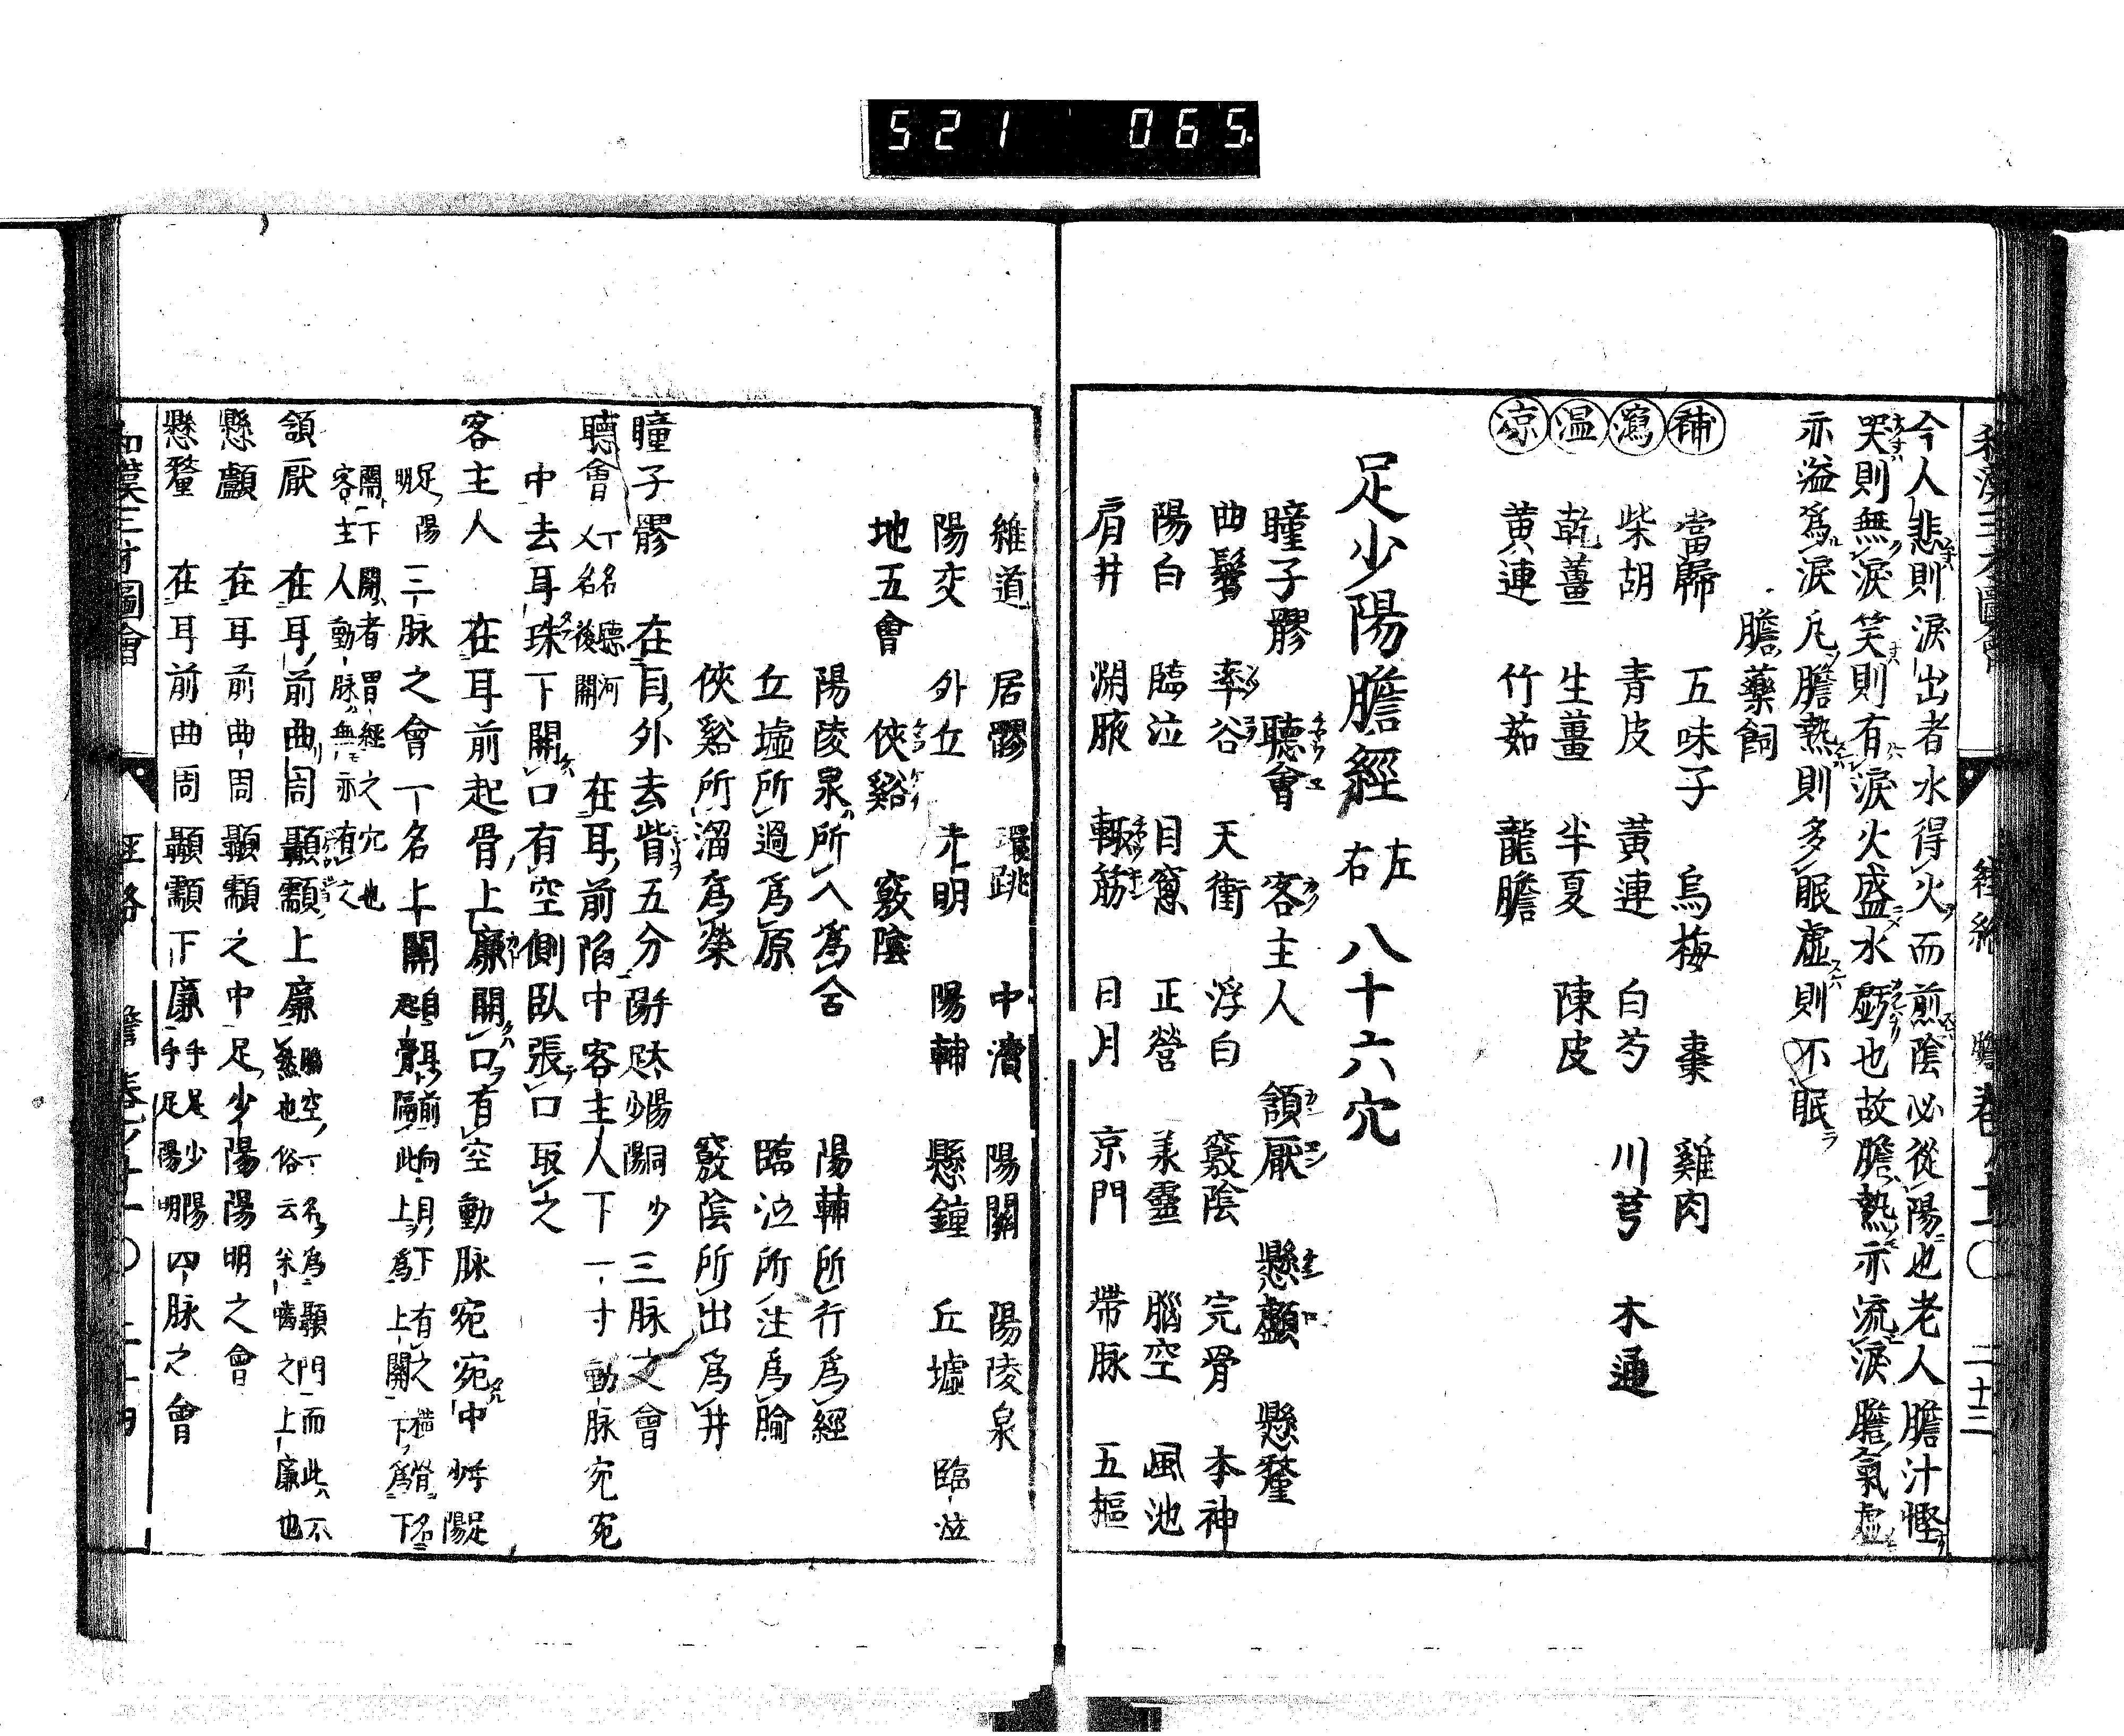 521 065
今人悲則淚出者水得火而煎陰必從陽也老人膽汁慳
哭則無淚笑則有淚火盛水虧也故膽熱亦流淚膽氣虛
亦溢爲淚凡膽熱則多眠虛則不眠
膽藥飼
補 當歸 五味子 烏梅 棗 雞肉
瀉 柴胡 青皮 黃連 白芍 川芎 木通
温 乾薑 生薑 半夏 陳皮
凉 黄連 竹茹 龍膽
足少陽膽經 左右 八十六穴
瞳子髎 聽會 客主人 頷厭 懸顱 懸釐
曲鬢 率谷 天衝 浮白 竅陰 完骨 本神
陽白 臨泣 目窻 正營 承靈 腦空 風池
肩井 淵腋 輒筋 日月 京門 帶脉 五樞
維道 居髎 環跳 中瀆 陽關 陽陵泉
陽交 外丘 光明 陽輔 懸鐘 丘墟 臨泣
地五會 俠谿 竅陰
陽陵泉所入爲合 陽輔所行爲經
丘墟所過爲原 臨泣所注爲腧
俠谿所溜爲榮 竅陰所出爲井
瞳子髎 在目外去眥五分 手太陽足少陽 三脉之會
聽會 一名聽河 又名後關 在耳前陷中客主人下一寸動脉宛宛
中去耳珠下開口有空側臥張口取之
客主人 在耳前起骨上廉開口有空動脉宛宛中 手足少陽
足陽明 三脉之會一名上關 自耳前向目下有之橫骨名起骨隔此上爲上關下爲下
關下關者胃經之穴也客主人動脉無亦有之
頷厭 在耳前曲周顳顬上廉 腦空一名爲顳門而此不然也俗云米嚙之上廉也
懸顱 在耳前曲周顳顬之中足少陽陽明之會
懸釐 在耳前曲周顳顬下廉 手足少陽手足陽明 四脉之會